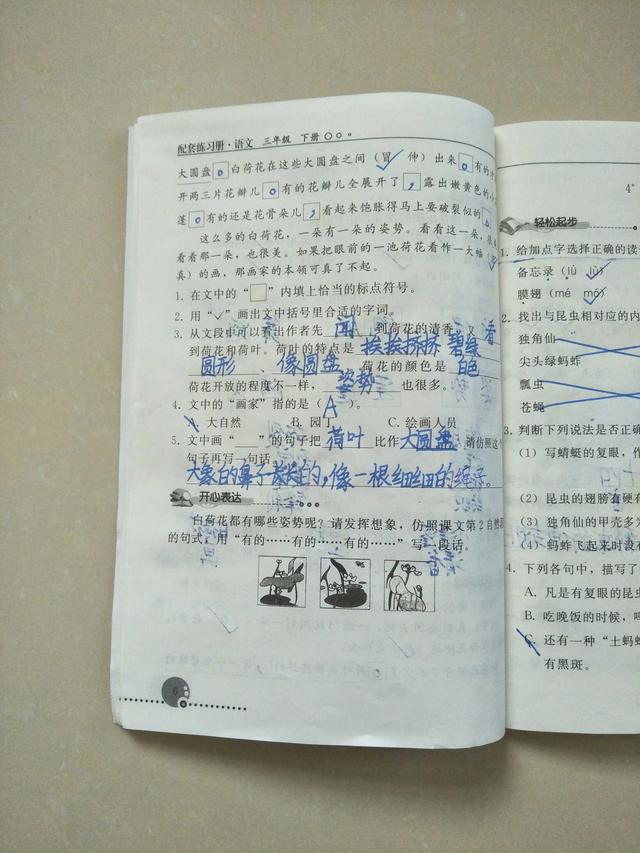 配套练习册·语文 三年级 下册
大圆盘。白荷花在这些大圆盘之间(冒 伸)出来。有的才
开两三片花瓣儿。有的花瓣儿全展开了,露出嫩黄色的小
蓬。有的还是花骨朵儿,看起来饱胀得马上要破裂似的
这么多的白荷花,一朵有一朵的姿势。看看这一朵,很
看看那一朵,也很美。如果把眼前的一池荷花看作一大幅
真)的画,那画家的本领可真了不起。
1. 在文中的“□”内填上恰当的标点符号。
2. 用“✓”画出文中括号里合适的字词。
3. 从文段中可以看出作者先 闻 到荷花的清香,又
到荷花和荷叶。荷叶的特点是 挨挨挤挤 碧绿
圆形 、 像圆盘 荷花的颜色是 白色
荷花开放的程度不一样, 姿势 也很多。
4. 文中的“画家”指的是( A )。
A. 大自然 B. 园丁 C. 绘画人员
5. 文中画“____”的句子把 荷叶 比作 大圆盘 请仿照这个
句子再写一句话。
大象的鼻子长长的,像一根细细的绳子。
开心表达
白荷花都有哪些姿势呢?请发挥想象,仿照课文第2自然
的句式,用“有的……有的……有的……”写一段话。
6
轻松起步
1. 给加点字选择正确的读
备忘录(lù lǜ)
膜翅(mé mó)
2. 找出与昆虫相对应的内
独角仙
尖头绿蚂蚱
瓢虫
苍蝇
3. 判断下列说法是否正确
(1) 写蜻蜓的复眼,作
(2) 昆虫的翅膀有硬有
(3) 独角仙的甲壳多为
(4) 蚂蚱飞起来时没有
4. 下列各句中,描写了
A. 凡是有复眼的昆虫
B. 吃晚饭的时候,
C. 还有一种“土蚂蚱
有黑斑。